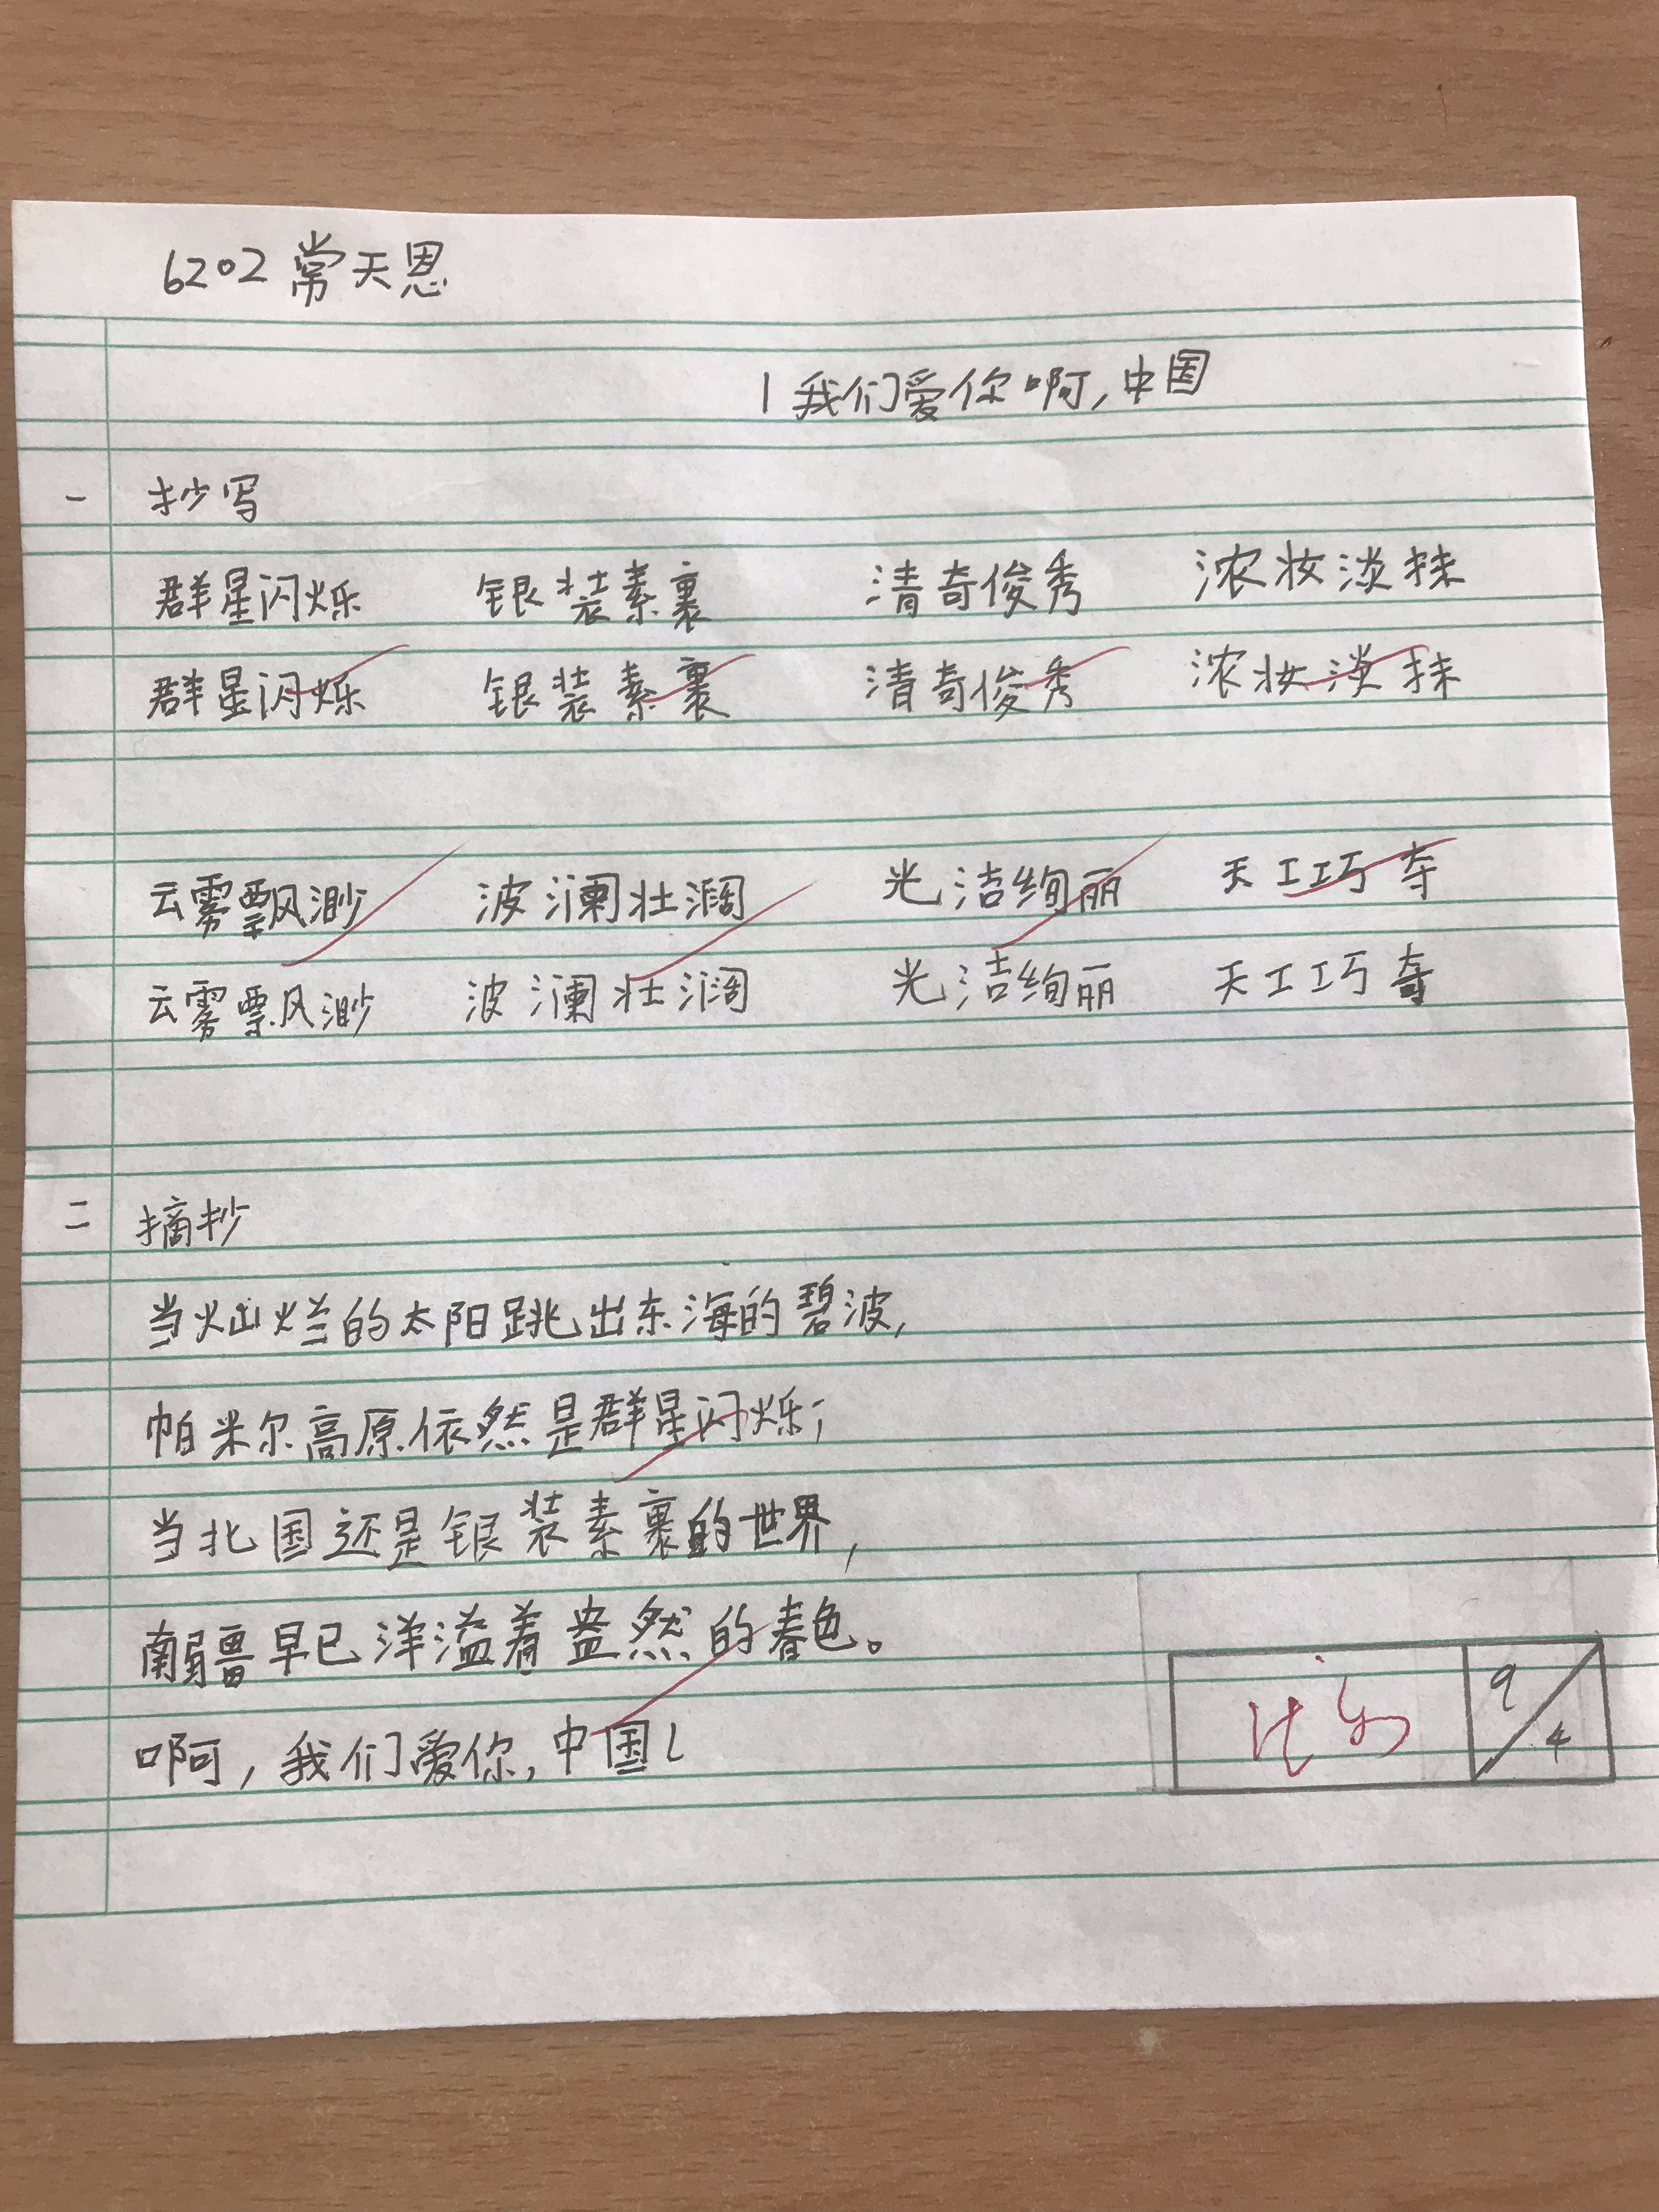 6202 常天恩
1 我们爱你啊,中国
一 抄写
群星闪烁 银装素裹 清奇俊秀 浓妆淡抹
群星闪烁 银装素裹 清奇俊秀 浓妆淡抹
云雾飘渺 波澜壮阔 光洁绚丽 天工巧夺
云雾飘渺 波澜壮阔 光洁绚丽 天工巧夺
二 摘抄
当灿烂的太阳跳出东海的碧波,
帕米尔高原依然是群星闪烁;
当北国还是银装素裹的世界,
南疆早已洋溢着盎然的春色。
啊,我们爱你,中国!
优
9/4